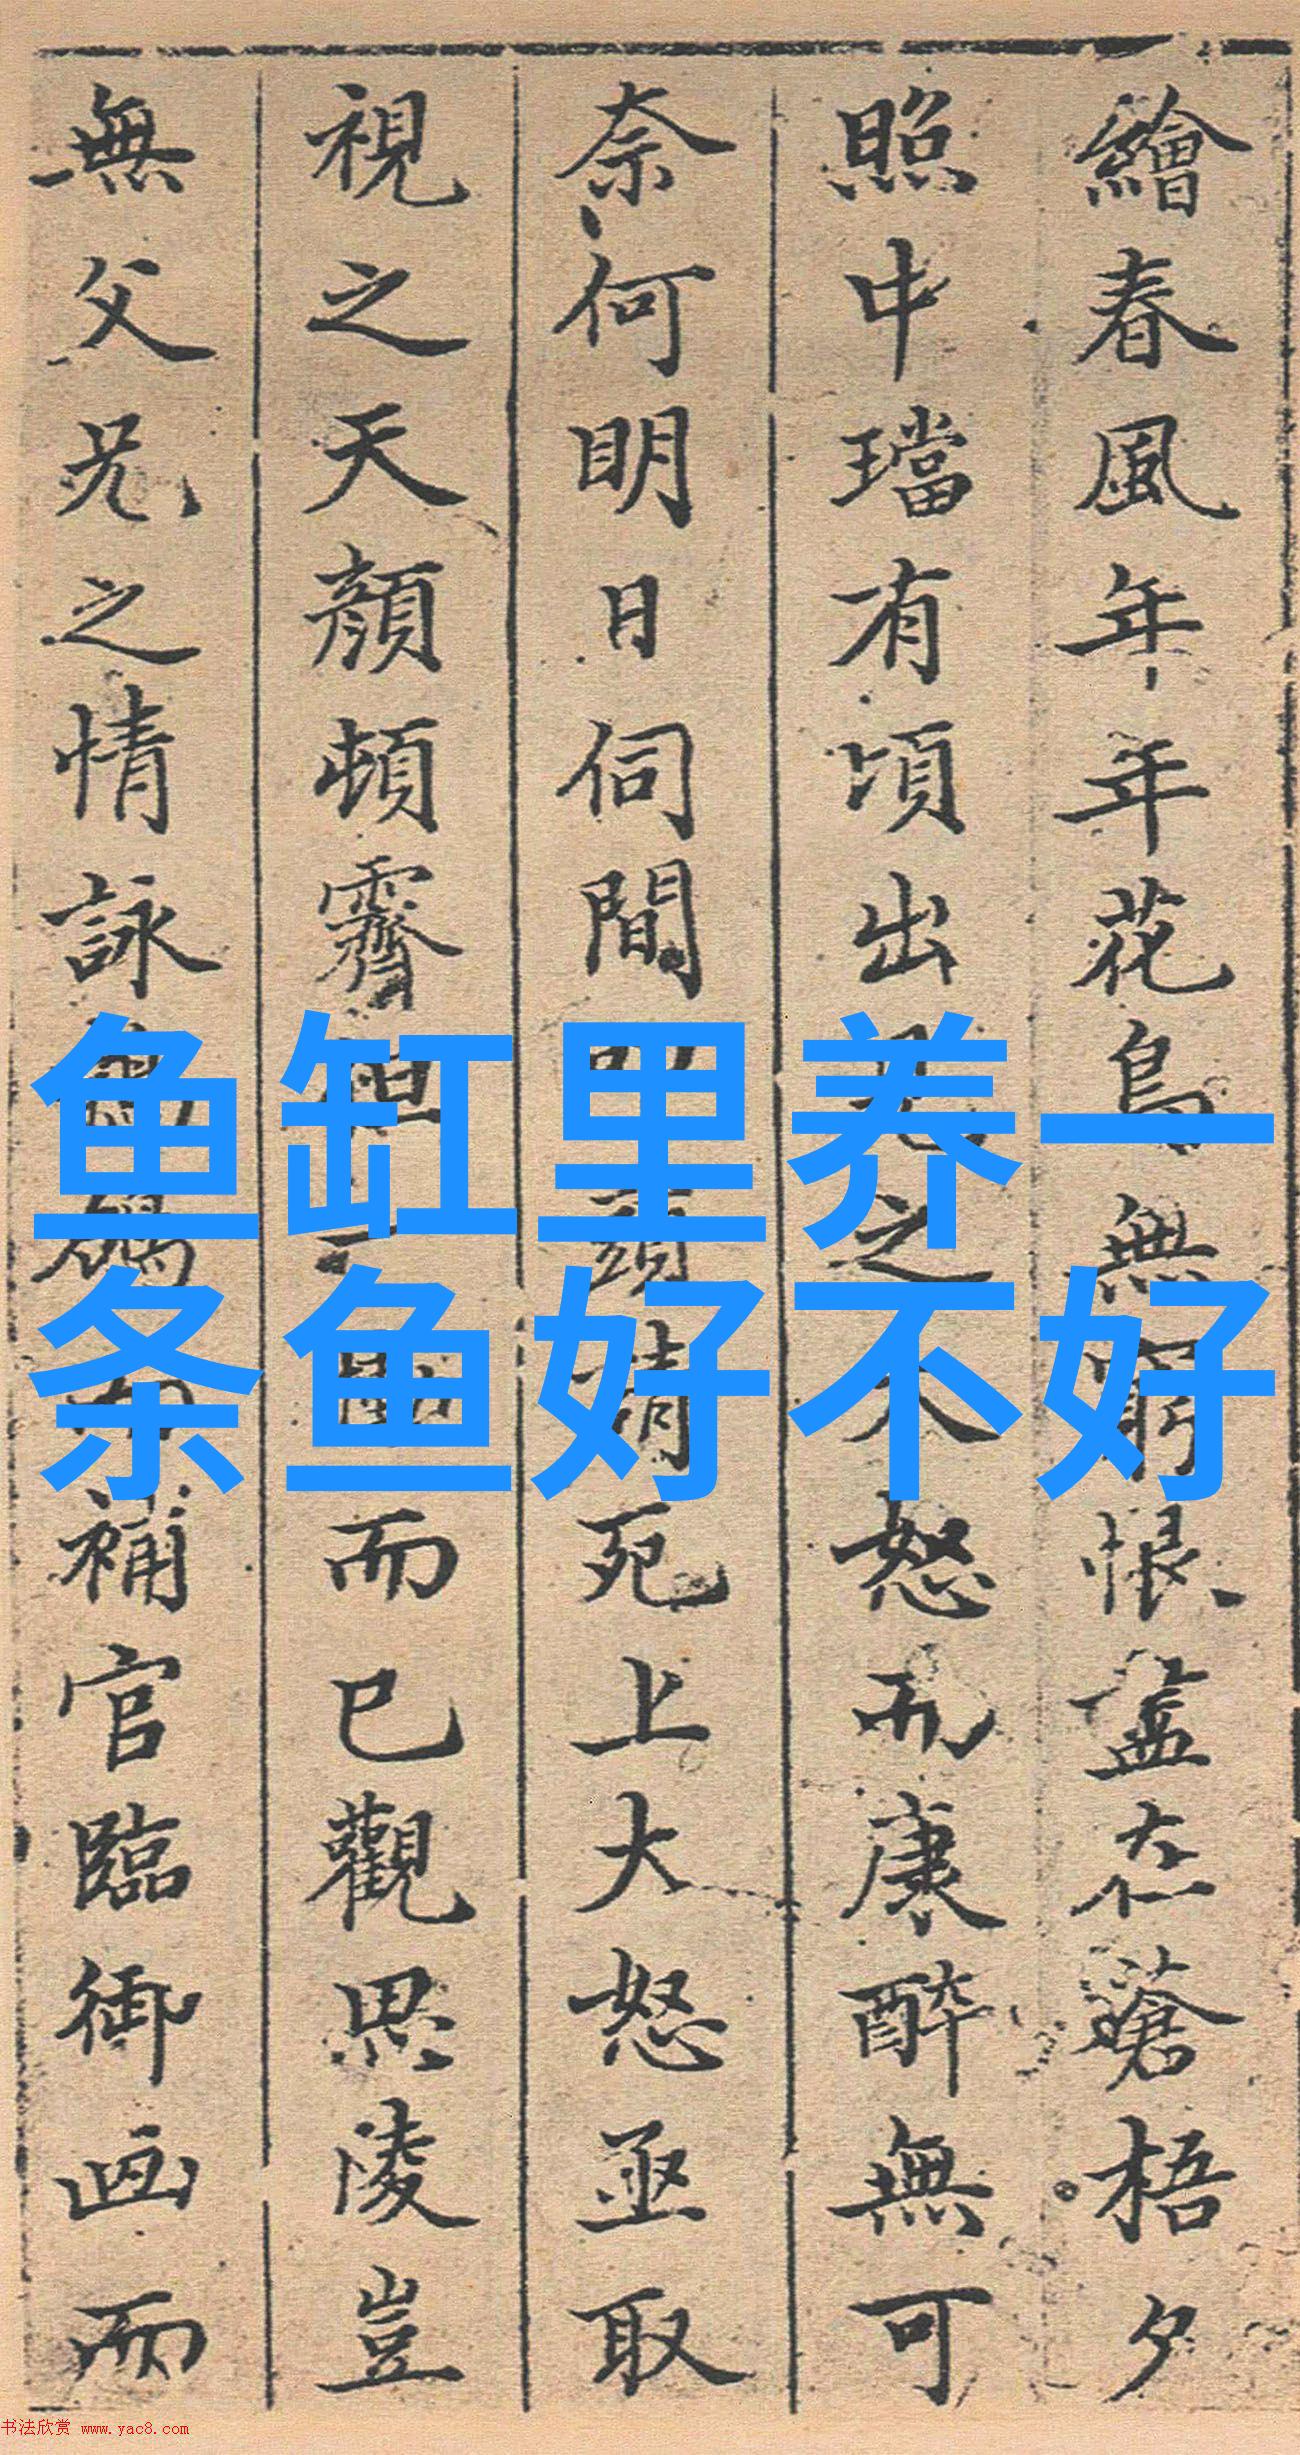 繪春風年年花鳥無窮恨盡在蒼梧夕
照中璫有頃出見之大怒而康醉無可
奈何明日伺間叩頭請死上大怒亟取
視之天顏頓霽但一慟而已觀思陵豈
無父兄之情詠補官臨御画而
鱼缸里养一
条鱼好不好
书法欣赏 www.yac8.com